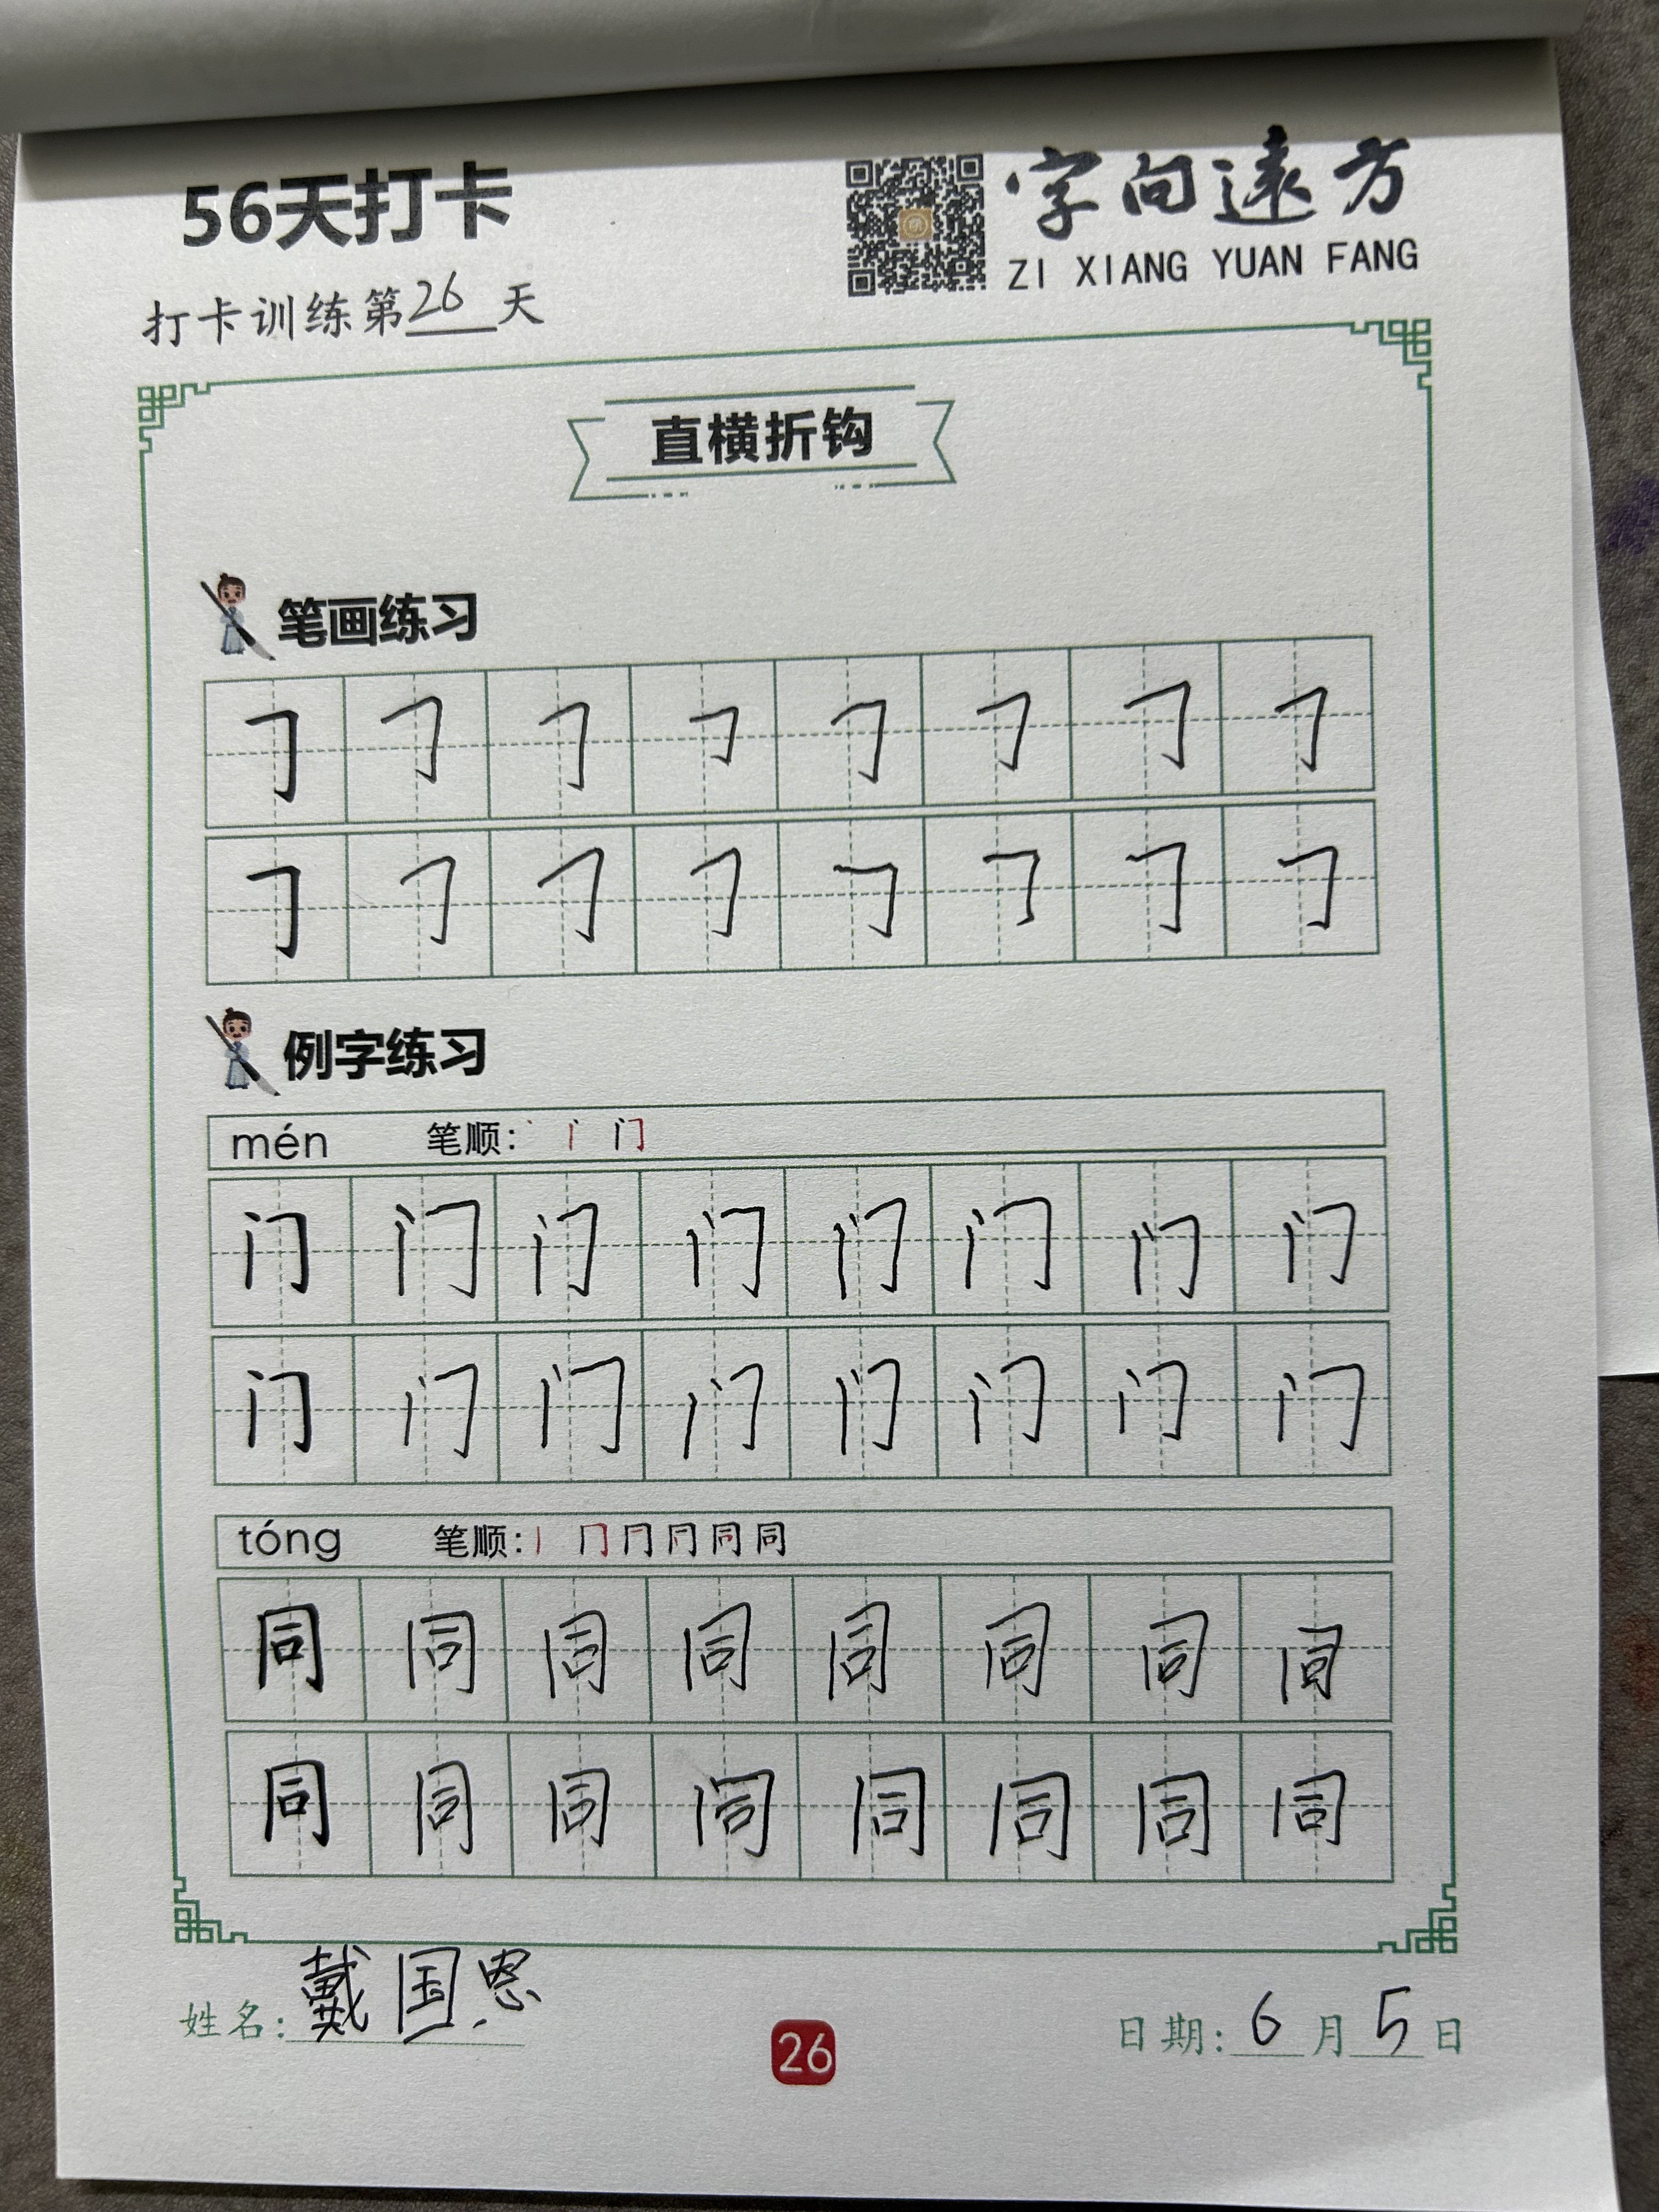 56天打卡
字向遠方
ZI XIANG YUAN FANG
打卡训练第26天
直横折钩
笔画练习
𠃌 𠃌 𠃌 𠃌 𠃌 𠃌 𠃌 𠃌
𠃌 𠃌 𠃌 𠃌 𠃌 𠃌 𠃌 𠃌
例字练习
mén 笔顺: 丶 门
门 门 门 门 门 门 门 门
门 门 门 门 门 门 门 门
tóng 笔顺: 丨 冂 同
同 同 同 同 同 同 同 同
同 同 同 同 同 同 同 同
姓名: 戴国恩
26
日期: 6月5日